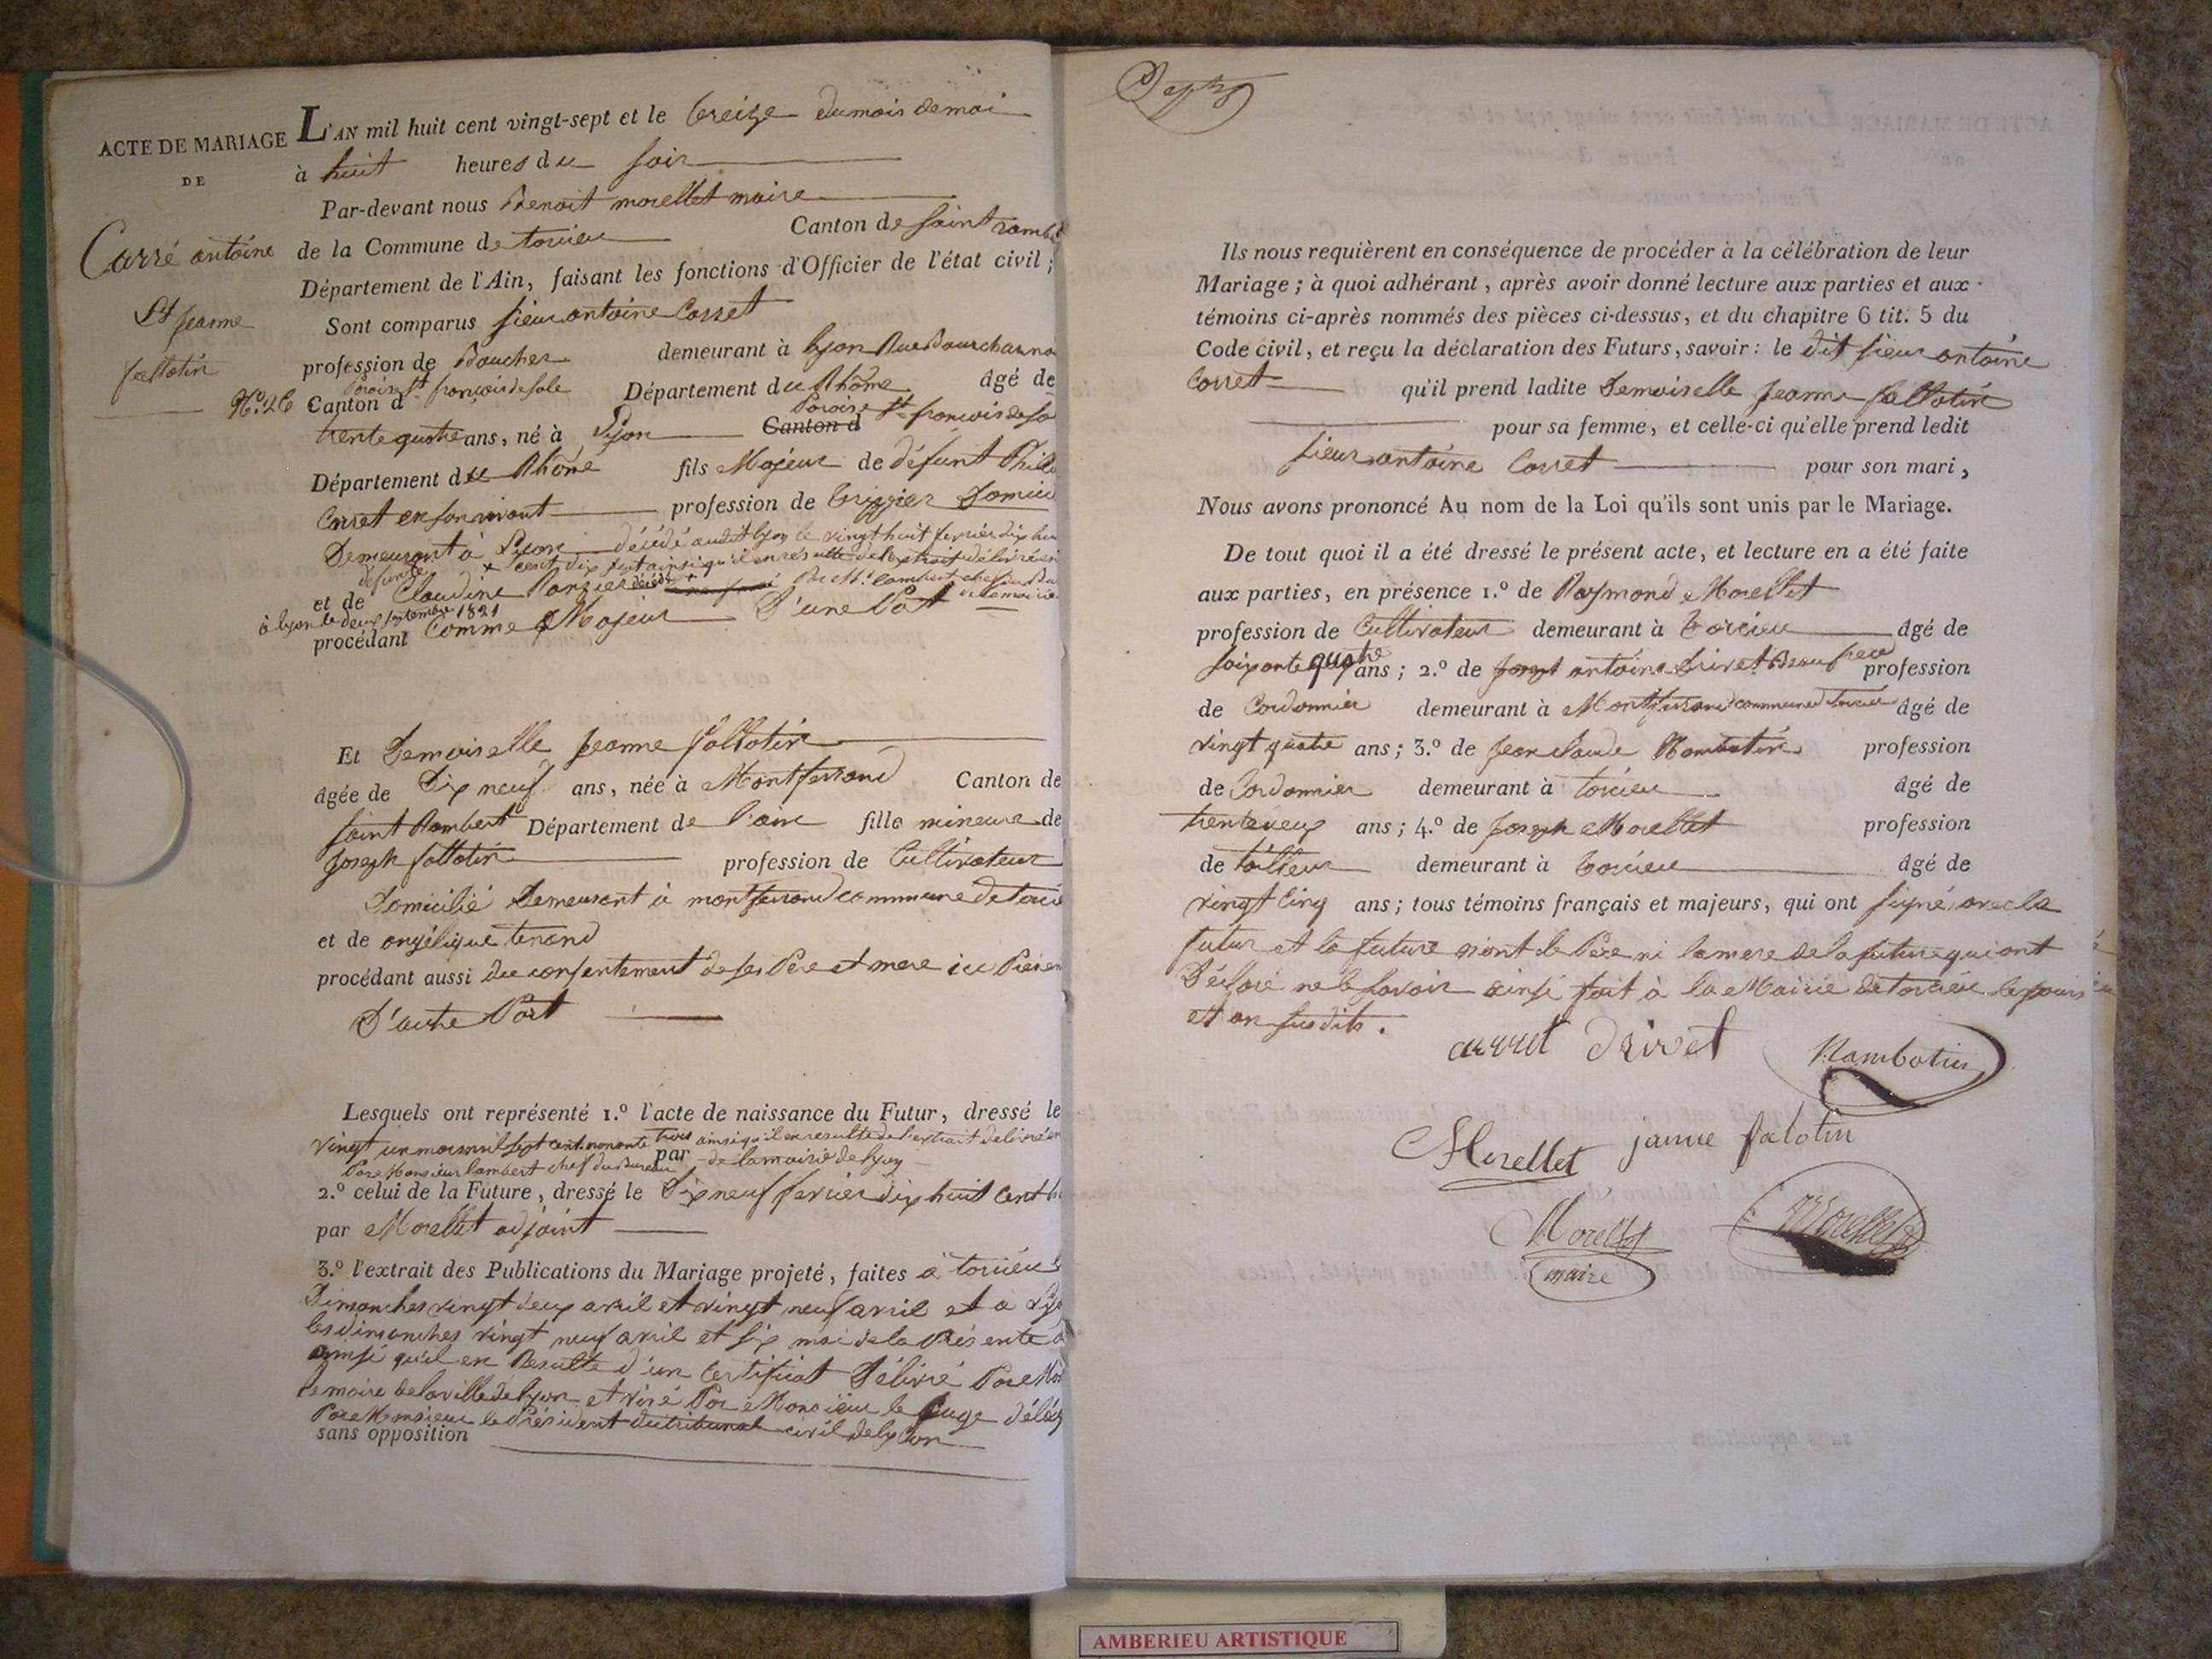 ACTE DE MARIAGE
DE
Carré antoine
et jeanne
fallotin
N.o 26
L'AN mil huit cent vingt-sept et le treize du mois de mai
à huit heures du soir
Par-devant nous Benoit morellet maire
de la Commune de torcieu Canton de saint ramb
Département de l'Ain, faisant les fonctions d'Officier de l'état civil ;
Sont comparus sieur antoine Carret
profession de Boucher demeurant à lyon Rue Bourchanin
Paroisse St françois de sale
Canton d Département du Rhône âgé de
Paroisse St françois de sa
trente quatre ans, né à Lyon Canton d
Département du Rhône fils Majeur de défunt Phili
Carret en son vivant profession de trippier Domici
Demeurant à Lyon décédé audit lyon le vingt huit fevrier dix hu
cent dix sept ainsi qu'il en résulte de l'extrait délivré
défunte par Mr. lambert chef du Bu
et de Claudine Panzier décédé de la mairie
à lyon le deux septembre 1821
procédant Comme Majeur D'une Part
Et Demoiselle jeanne fallotin
âgée de Dix neuf ans, née à Montferrand Canton de
saint Rambert Département de l'ain fille mineure de
joseph fallotin profession de Cultivateur
Domicilié Demeurant à montferrand commune de torcie
et de angélique tenand
procédant aussi du consentement de ses Père et mere ici Présen
D'autre Part
Lesquels ont représenté 1.o l'acte de naissance du Futur, dressé le
vingt un mars mil sept cent nonante trois ainsi qu'il en resulte de l'extrait delivré
par
Par Monsieur lambert chef du Bureau de la mairie de lyon
2.o celui de la Future, dressé le Dix neuf fevrier dix huit cent h
par Morellet adjoint
3.o l'extrait des Publications du Mariage projeté, faites à torcieu
Dimanches vingt deux avril et vingt neuf avril et a Lyo
les dimanches vingt neuf avril et six mai de la Présente
ainsi qu'il en Resulte d'un Certificat Délivré Par Mon
le maire de la ville de lyon et visé Par Monsieur le juge délég
Par Monsieur le Président du tribunal civil de lyon
sans opposition
Ils nous requièrent en conséquence de procéder à la célébration de leur
Mariage ; à quoi adhérant, après avoir donné lecture aux parties et aux
témoins ci-après nommés des pièces ci-dessus, et du chapitre 6 tit. 5 du
Code civil, et reçu la déclaration des Futurs, savoir : le dit sieur antoine
Carret qu'il prend ladite Demoiselle jeanne fallotin
pour sa femme, et celle-ci qu'elle prend ledit
sieur antoine Carret pour son mari,
Nous avons prononcé Au nom de la Loi qu'ils sont unis par le Mariage.
De tout quoi il a été dressé le présent acte, et lecture en a été faite
aux parties, en présence 1.o de Raymond Morellet
profession de Cultivateur demeurant à torcieu âgé de
soixante quatre ans ; 2.o de joseph antoine Drivet Beau frere profession
de Cordonnier demeurant à Montferrand commune d torcieu âgé de
vingt quatre ans ; 3.o de jean claude Rambotin profession
de Cordonnier demeurant à torcieu âgé de
trente deux ans ; 4.o de joseph Morellet profession
de tailleur demeurant à torcieu âgé de
vingt cinq ans ; tous témoins français et majeurs, qui ont signé avec le
futur et la future non le Père ni la mere de la future qui ont
Déclaré ne le savoir ainsi fait à la Mairie de torcieu les jours
et an susdits.
carret Drivet Rambotin
Morellet janne falotin
Morellet Morellet
maire
AMBERIEU ARTISTIQUE